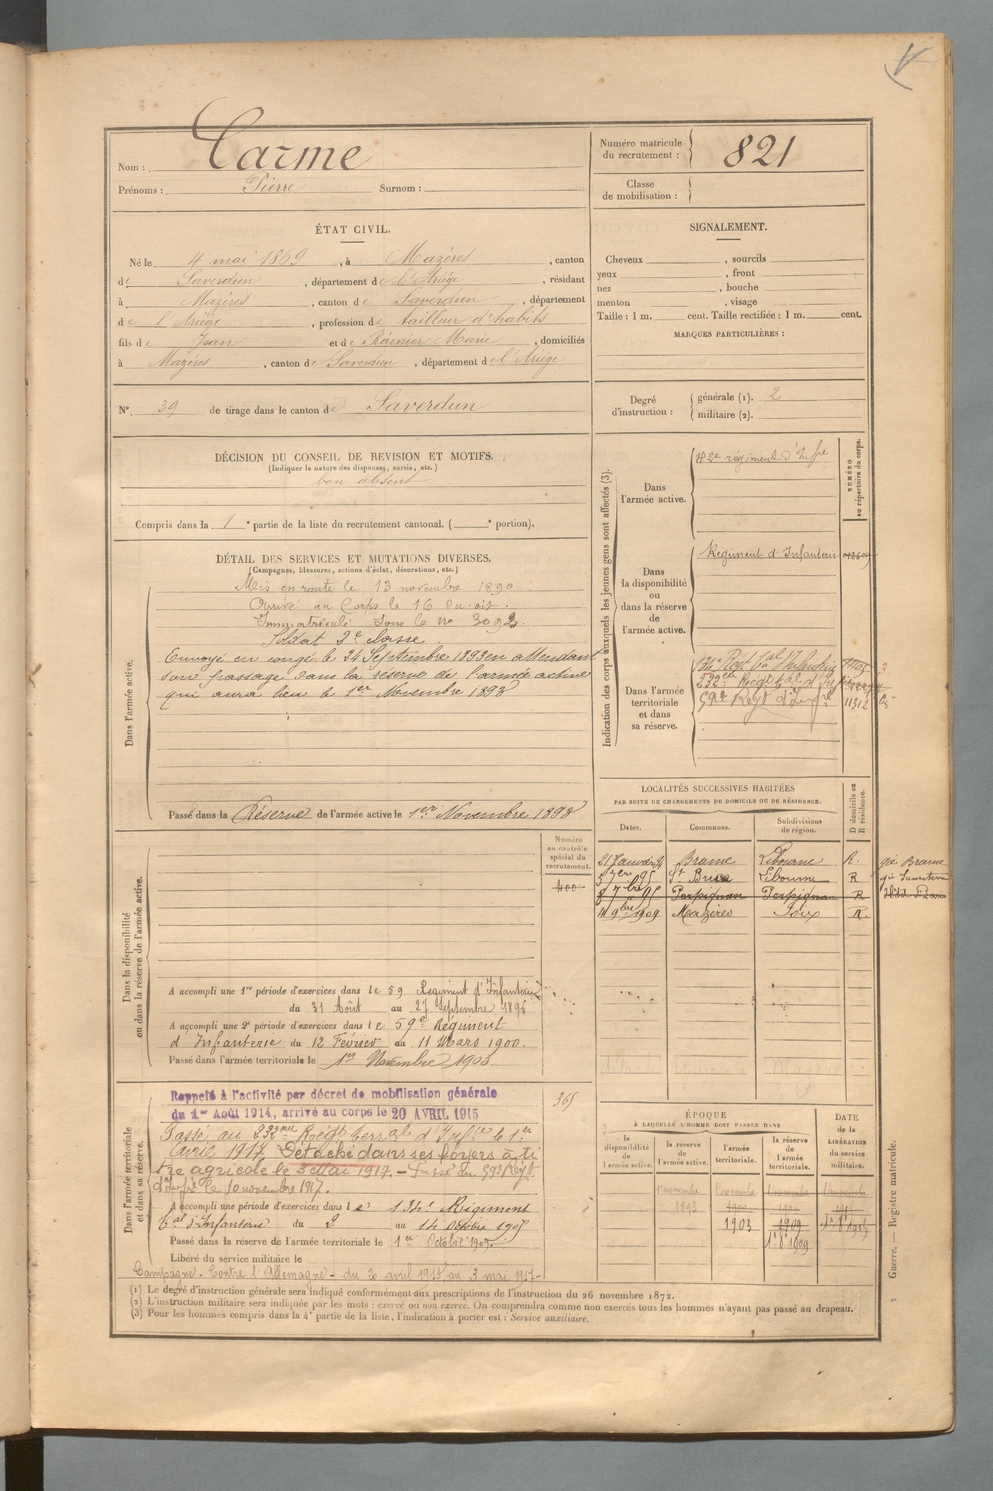 Nom : Carme
Prénoms : Pierre Surnom :
Numéro matricule
du recrutement : 821
Classe
de mobilisation :
ÉTAT CIVIL.
Né le 4 mai 1869, à Mazères, canton
de Saverdun, département de l'Ariége, résidant
à Mazères, canton de Saverdun, département
de l'Ariége, profession de tailleur d'habits
fils de Jean et de Marie, domiciliés
à Mazères, canton de Saverdun, département de l'Ariége
N° 39 de tirage dans le canton de Saverdun
SIGNALEMENT.
Cheveux , sourcils
yeux , front
nez , bouche
menton , visage
Taille : 1 m. cent. Taille rectifiée : 1 m. cent.
MARQUES PARTICULIÈRES :
Degré
d'instruction :
générale (1). 2
militaire (2).
DÉCISION DU CONSEIL DE REVISION ET MOTIFS.
(Indiquer la nature des dispenses, sursis, etc.)
bon absent
Compris dans la 1e partie de la liste du recrutement cantonal, ( e portion).
DÉTAIL DES SERVICES ET MUTATIONS DIVERSES.
(Campagnes, blessures, actions d'éclat, décorations, etc.)
Dans l'armée active.
Mis en route le 13 novembre 1890
Arrivé au Corps le 16 du dit.
Immatriculé sous le no 3092.
Soldat 2e classe.
Envoyé en congé le 24 Septembre 1893 en attendant
son passage dans la réserve de l'armée active
qui aura lieu le 1er Novembre 1893
Passé dans la Réserve de l'armée active le 1er Novembre 1893
Indication des corps auxquels les jeunes gens sont affectés (3).
NUMÉRO
au répertoire du corps.
Dans
l'armée active.
régiment d'Infrie
Dans
la disponibilité
ou
dans la réserve
de
l'armée active.
Régiment d'Infanterie
Dans l'armée
territoriale
et dans
sa réserve.
134e Regt tal d'Infanterie
232e Régt tal d'Infie
59e Regt d'Infrie 11312
LOCALITÉS SUCCESSIVES HABITÉES
PAR SUITE DE CHANGEMENTS DE DOMICILE OU DE RÉSIDENCE.
Dates. Communes. Subdivisions
de région. D domicile ou
R résidence.
21 Janvier 94 Branne Libourne R. gie Branne
7er 95 St Brice Libourne R
7bre 95 Perpignan Perpignan R
9bre 1909 Mazères Foix R.
Numéro
au contrôle
spécial du
recrutement.
400
Dans la disponibilité
ou dans la réserve de l'armée active.
A accompli une 1re période d'exercices dans le 59 Régiment d'Infanterie
du 31 Août au 27 Septembre 1896
A accompli une 2e période d'exercices dans le 59e Régiment
d'Infanterie du 12 Février au 11 Mars 1900.
Passé dans l'armée territoriale le 1er Novembre 1903
Dans l'armée territoriale
et dans sa réserve.
Rappelé à l'activité par décret de mobilisation générale
du 1er Août 1914, arrivé au corps le 20 AVRIL 1915
365
Passé au 232me Régt terral d'Infie le 1er
Avril 1917. Détaché dans ses foyers à ti
tre agricole le 3 Mai 1917 - Passé au 59e Régt
d'Infie le 10 novembre 1917.
A accompli une période d'exercices dans le 134e Régiment
tal d'Infanterie du 2 au 14 Octobre 190
Passé dans la réserve de l'armée territoriale le 1er Octobre 1909.
Libéré du service militaire le
Campagne - Contre l'Allemagne - du 20 avril 1915 au 3 mai 1917 -
ÉPOQUE
À LAQUELLE L'HOMME DOIT PASSER DANS
la
disponibilité
de
l'armée active.
la réserve
de
l'armée active.
l'armée
territoriale.
la réserve
de
l'armée
territoriale.
DATE
de la
LIBÉRATION
du service
militaire.
1er novembre 1er novembre 1er novembre 1er novembre
1893 1900
1903 1909
1er 8bre 1909
(1) Le degré d'instruction générale sera indiqué conformément aux prescriptions de l'instruction du 26 novembre 1872.
(2) L'instruction militaire sera indiquée par les mots : exercé ou non exercé. On comprendra comme non exercés tous les hommes n'ayant pas passé au drapeau.
(3) Pour les hommes compris dans la 4e partie de la liste, l'indication à porter est : Service auxiliaire.
Guerre. — Registre matricule.